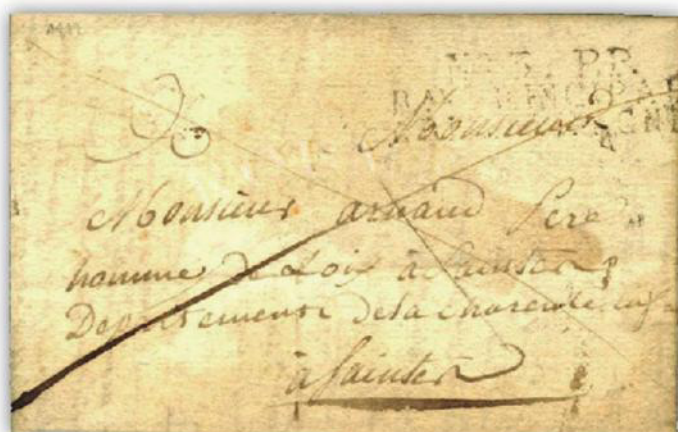 Monsieur
Monsieur arnaud Pere
homme de Loix à Saintes
Departement de la Charente inf
à Saintes